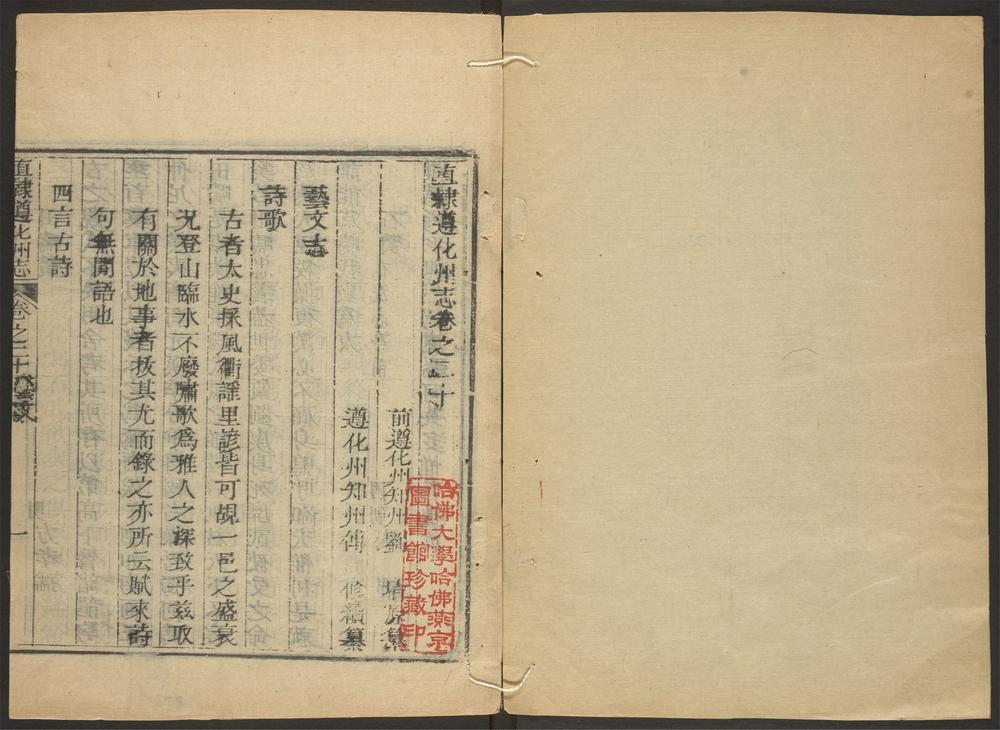 直隸遵化州志卷之二十
前遵化州知州劉 靖原纂
遵化州知州傅 修續纂
藝文志
詩歌
古者太史採風衢謠里諺皆可覘一邑之盛衰
況登山臨水不廢嘯歌為雅人之深致乎茲取
有關於地事者拔其尤而錄之亦所云賦來詩
句無閒語也
四言古詩
直隸遵化州志 卷之二十 藝文 一
哈佛大學哈佛燕京
圖書館珍藏印